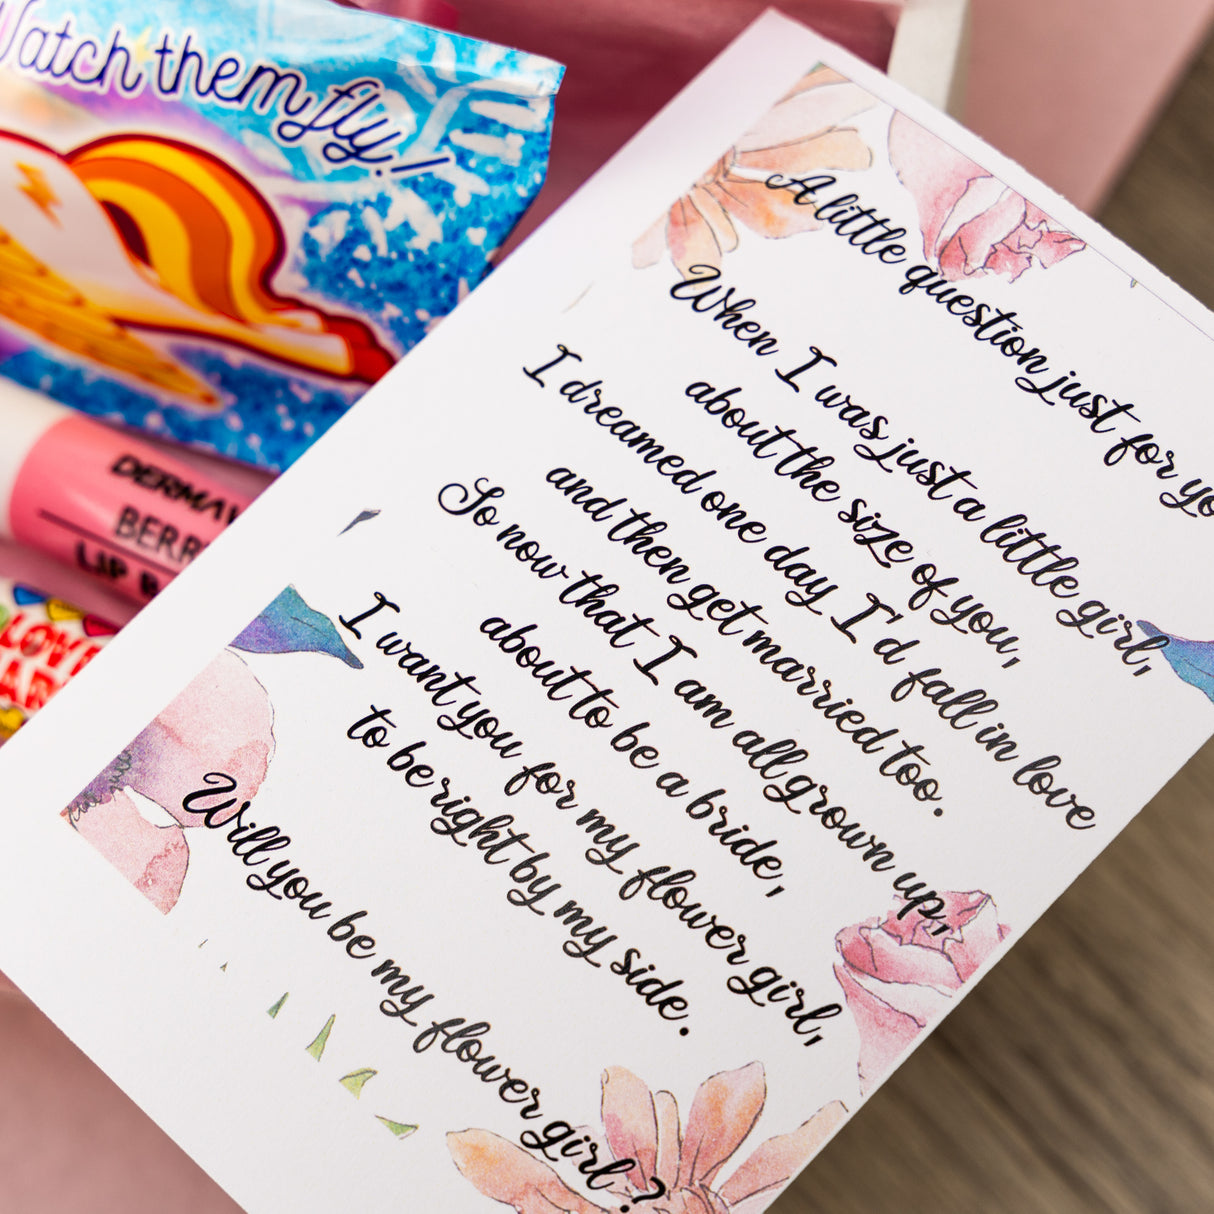 Watch them fly!
BERR
LIP B
LOVE
A little question just for yo
When I was just a little girl,
about the size of you,
I dreamed one day I'd fall in love
and then get married too.
So now that I am all grown up,
about to be a bride,
I want you for my flower girl,
to be right by my side.
Will you be my flower girl?